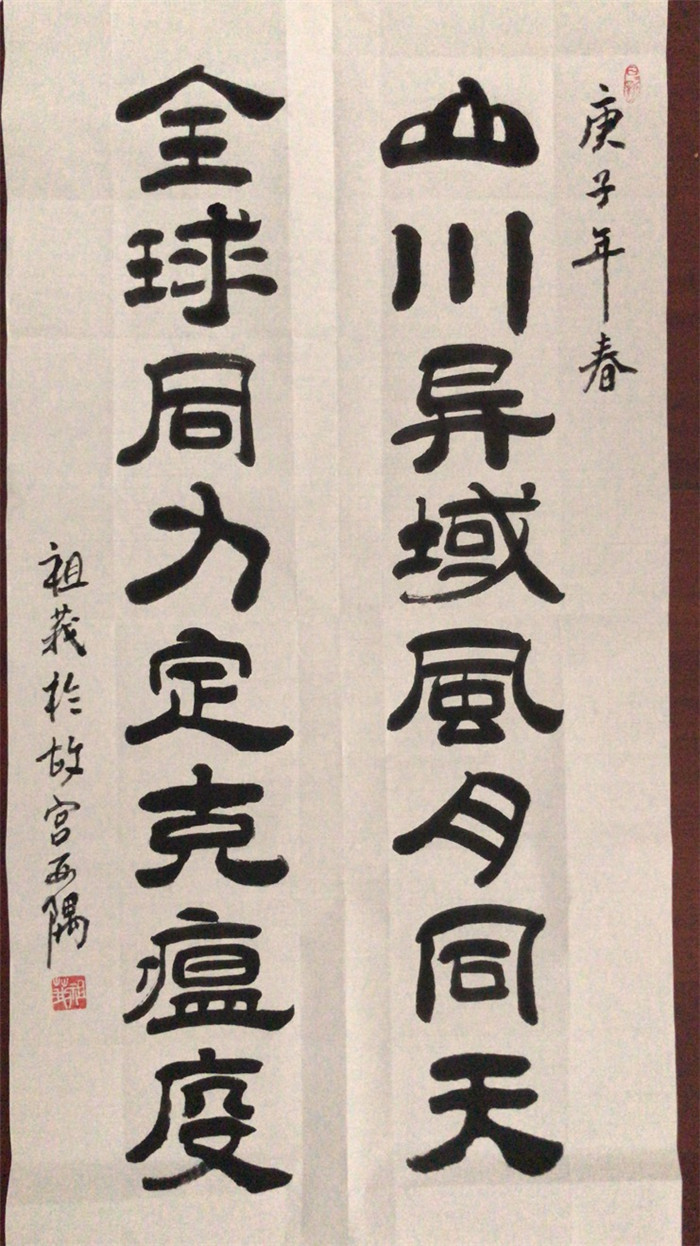 庚子年春
山川异域風月同天
全球同力定克瘟疫
祖莪於故宫西隅
祖莪